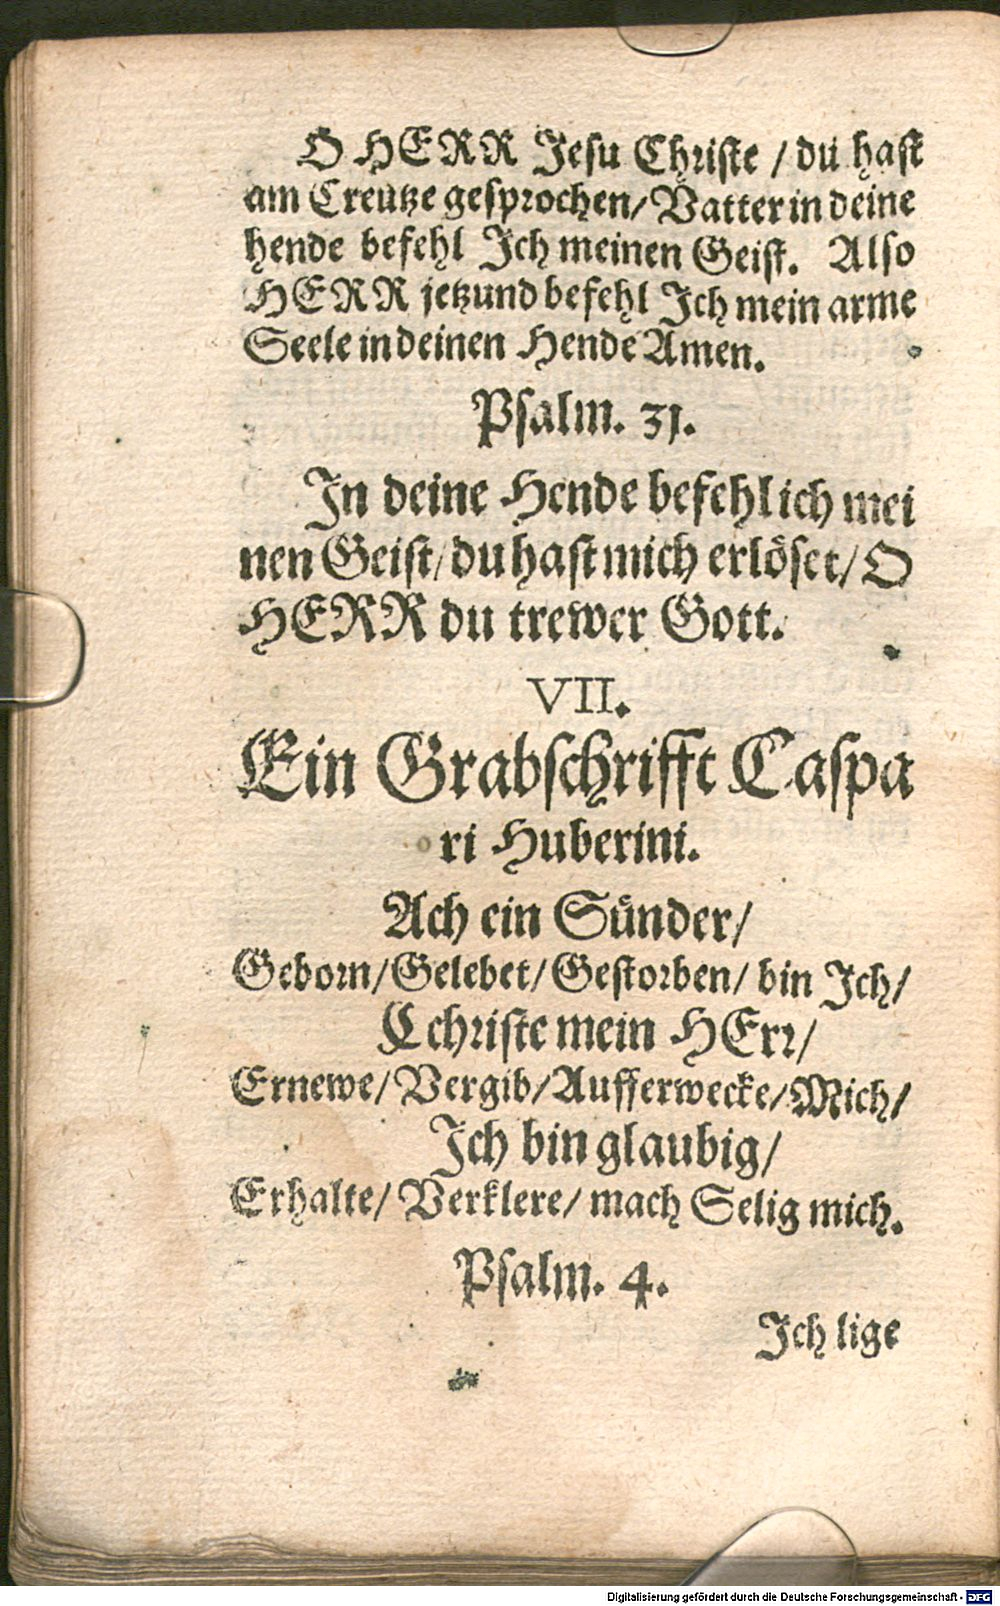 O HERR Jesu Christe / du hast
am Creutze gesprochen/ Vatter in deine
hende befehl Ich meinen Geist. Also
HERR jetzund befehl Ich mein arme
Seele in deinen Hende Amen.
Psalm. 31.
In deine Hende befehl ich mei
nen Geist/ du hast mich erlöset/ O
HERR du trewer Gott.
VII.
Ein Grabschrifft Caspa
ri Huberini.
Ach ein Sünder/
Geborn/ Gelebet/ Gestorben/ bin Ich/
Cchriste mein HErr/
Ernewe/ Vergib/ Aufferwecke/ Mich/
Ich bin glaubig/
Erhalte/ Verklere/ mach Selig mich.
Psalm. 4.
Ich lige
Digitalisierung gefördert durch die Deutsche Forschungsgemeinschaft - DFG